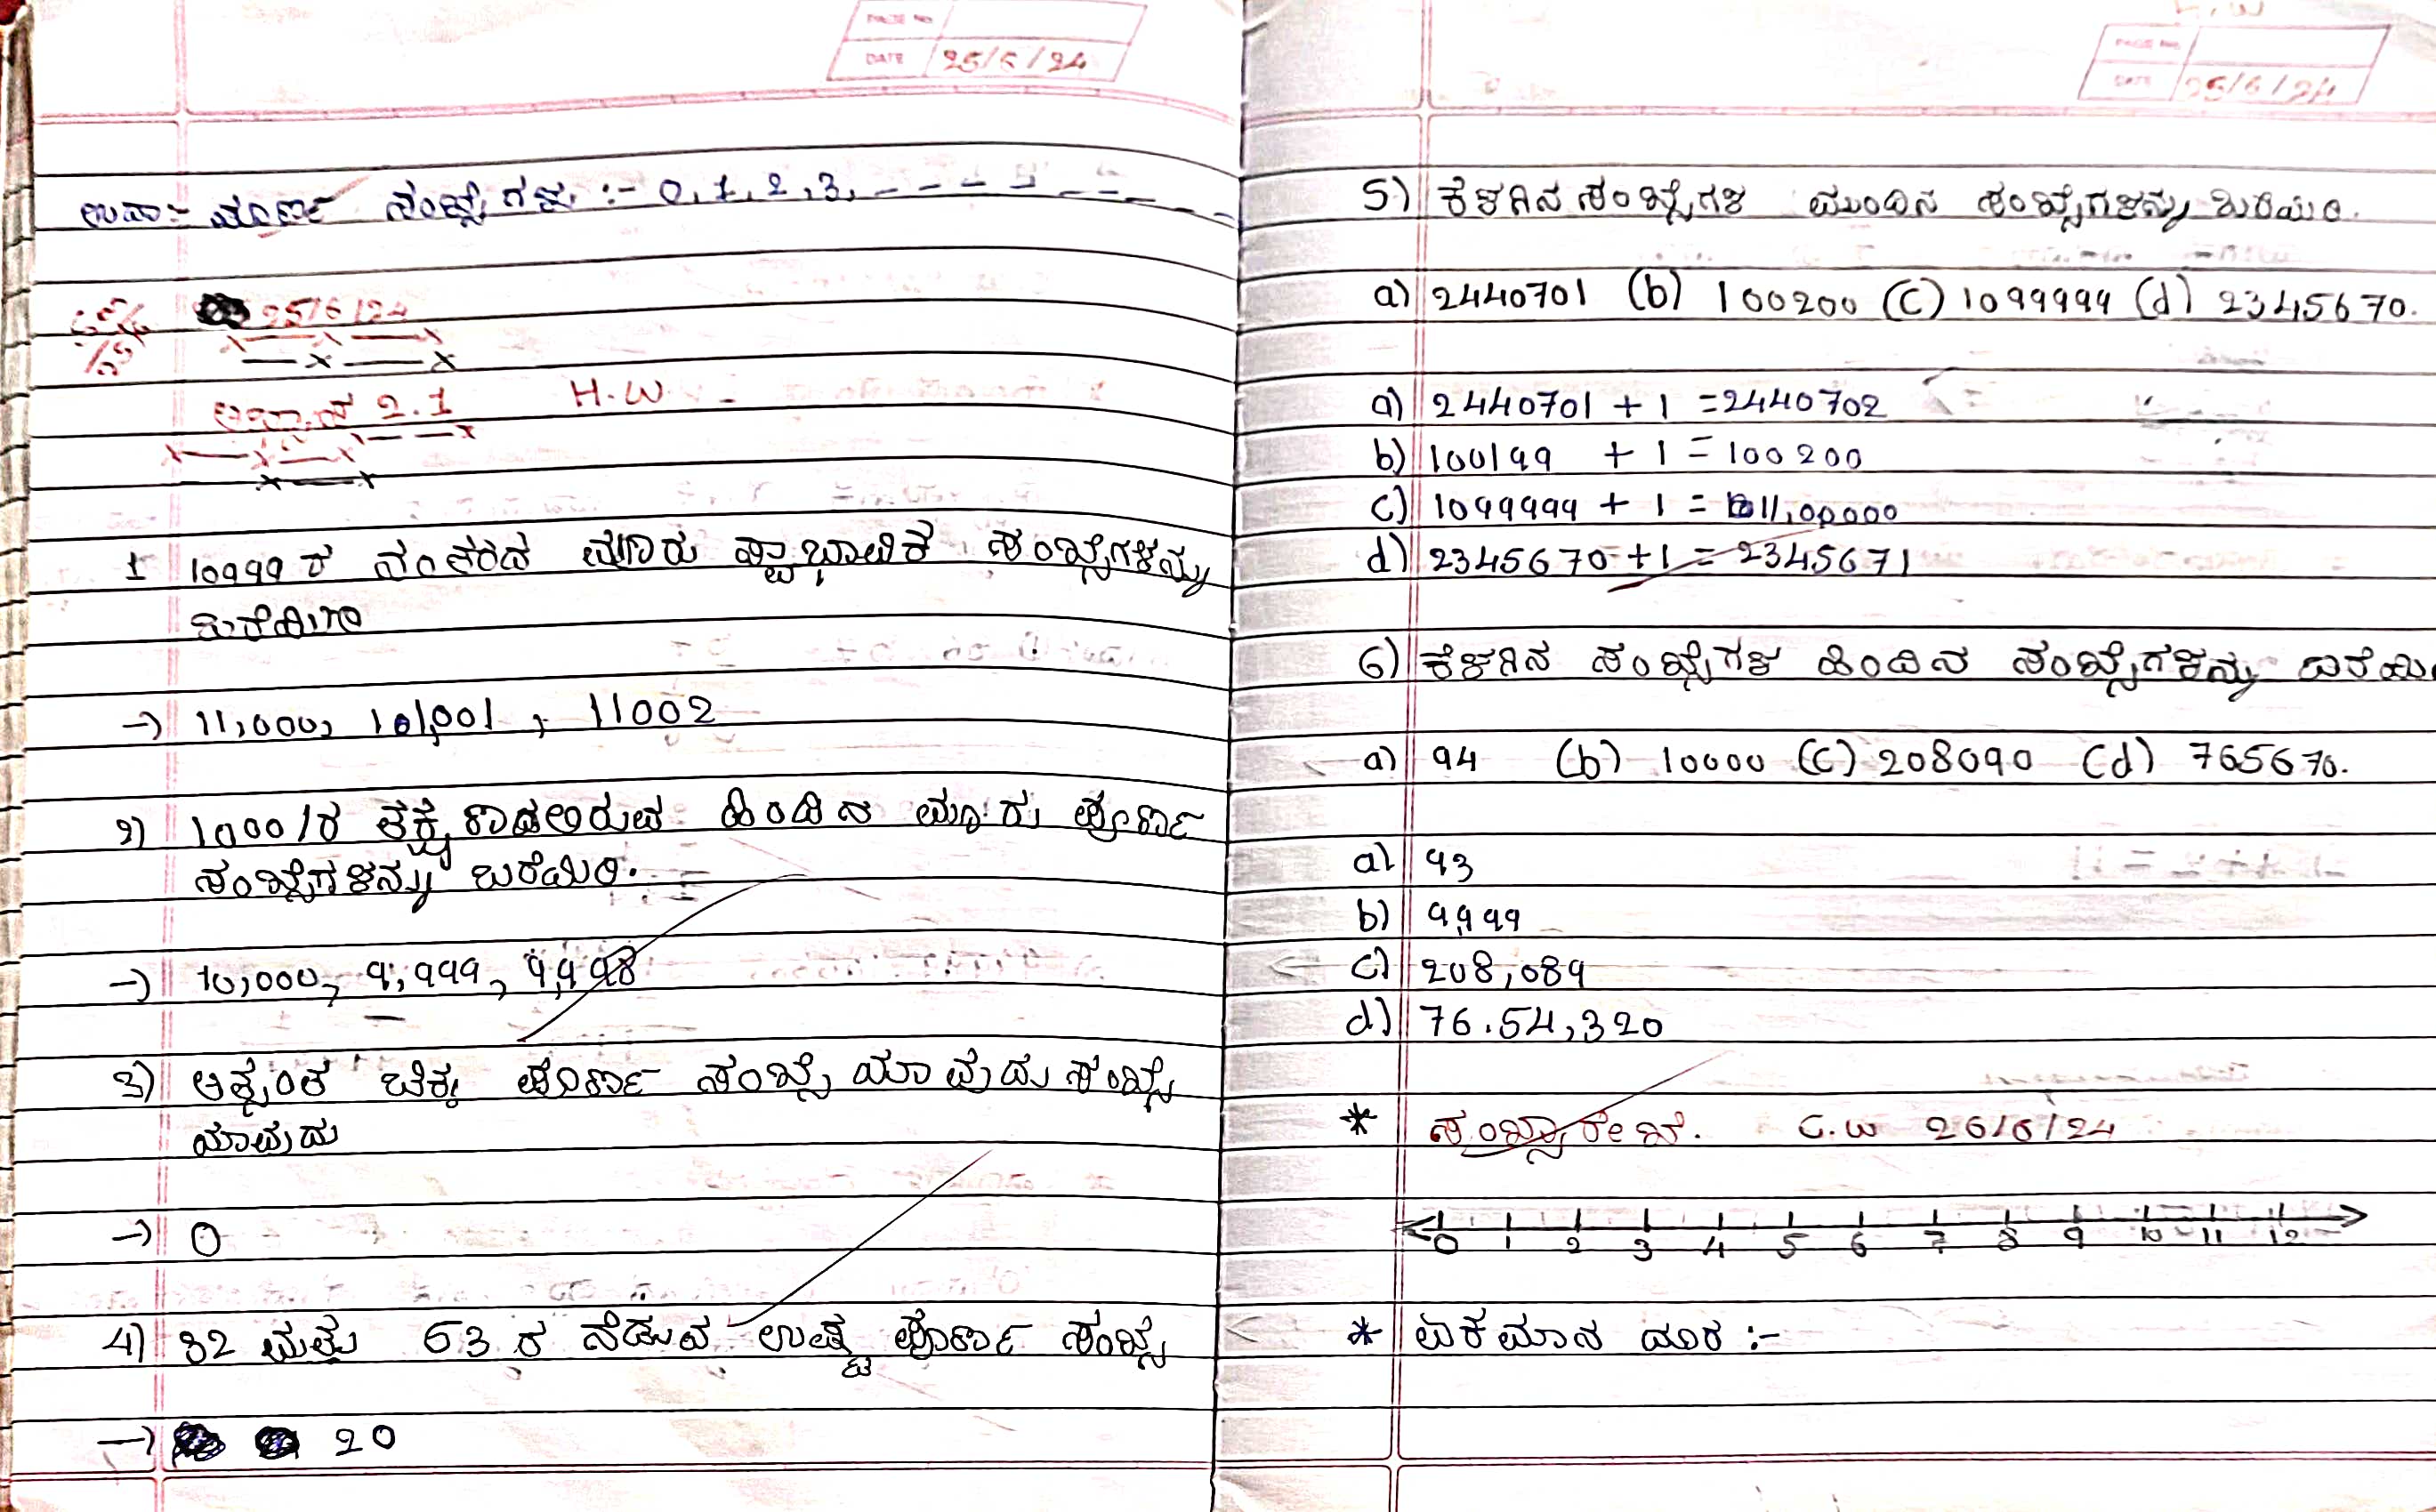 PAGE No
DATE 25/6/24
ಉದಾ:- ಪೂರ್ಣ ಸಂಖ್ಯೆಗಳು :- 0, 1, 2, 3, - - - - - - - -
25/6/24
ಅಭ್ಯಾಸ 2.1 H.W -
1 10999 ರ ನಂತರದ ಮೂರು ಸ್ವಾಭಾವಿಕ ಸಂಖ್ಯೆಗಳನ್ನು
ಬರೆಯಿರಿ
→ 11,000, 101,001, 11002
2) 10001ರ ಹಿಂದಿನ ಮೂರು ಪೂರ್ಣ
ಸಂಖ್ಯೆಗಳನ್ನು ಬರೆಯಿರಿ.
→ 10,000, 9,999, 9,998
3) ಅತ್ಯಂತ ಚಿಕ್ಕ ಪೂರ್ಣ ಸಂಖ್ಯೆ ಯಾವುದು ಸಂಖ್ಯೆ
ಯಾವುದು
→ 0
4) 32 ಮತ್ತು 53 ರ ನಡುವ ಪೂರ್ಣ ಸಂಖ್ಯೆ
→ 20
H.W
PAGE No
DATE 25/6/24
5) ಕೆಳಗಿನ ಸಂಖ್ಯೆಗಳ ಮುಂದಿನ ಸಂಖ್ಯೆಗಳನ್ನು ಬರೆಯಿರಿ.
a) 2440701 (b) 100200 (c) 1099999 (d) 2345670.
a) 2440701 + 1 = 2440702
b) 100199 + 1 = 100200
c) 1099999 + 1 = 11,00000
d) 2345670 + 1 = 2345671
6) ಕೆಳಗಿನ ಸಂಖ್ಯೆಗಳ ಹಿಂದಿನ ಸಂಖ್ಯೆಗಳನ್ನು ಬರೆಯಿ
a) 94 (b) 10000 (c) 208090 (d) 765670.
a) 93
b) 9,999
c) 208,089
d) 76.54,320
* ಸಂಖ್ಯಾರೇಖೆ. C.W 26/6/24
0 1 2 3 4 5 6 7 8 9 10 11 12
* ಏಕಮಾನ ದೂರ :-